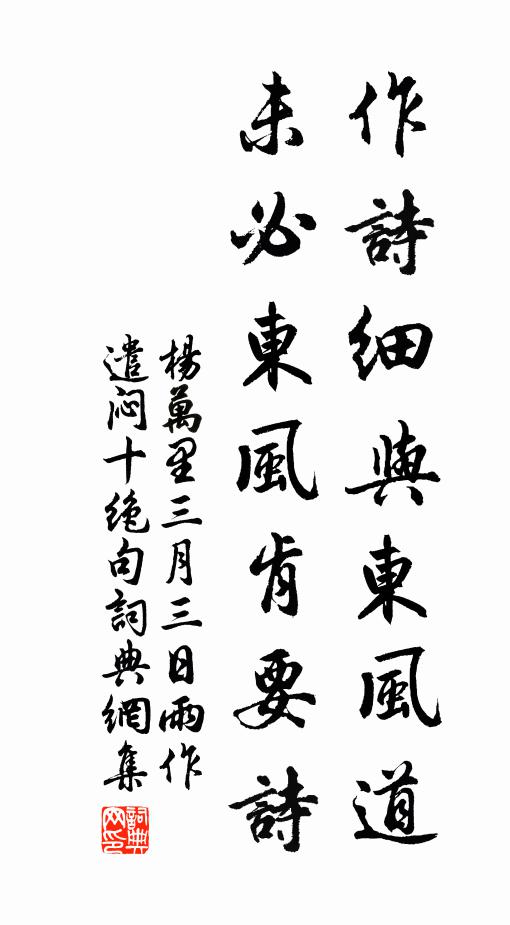 作詩細與東風道
未必東風肯要詩
楊萬里三月三日雨作
遣悶十絶句詞典網集
詞典
网印